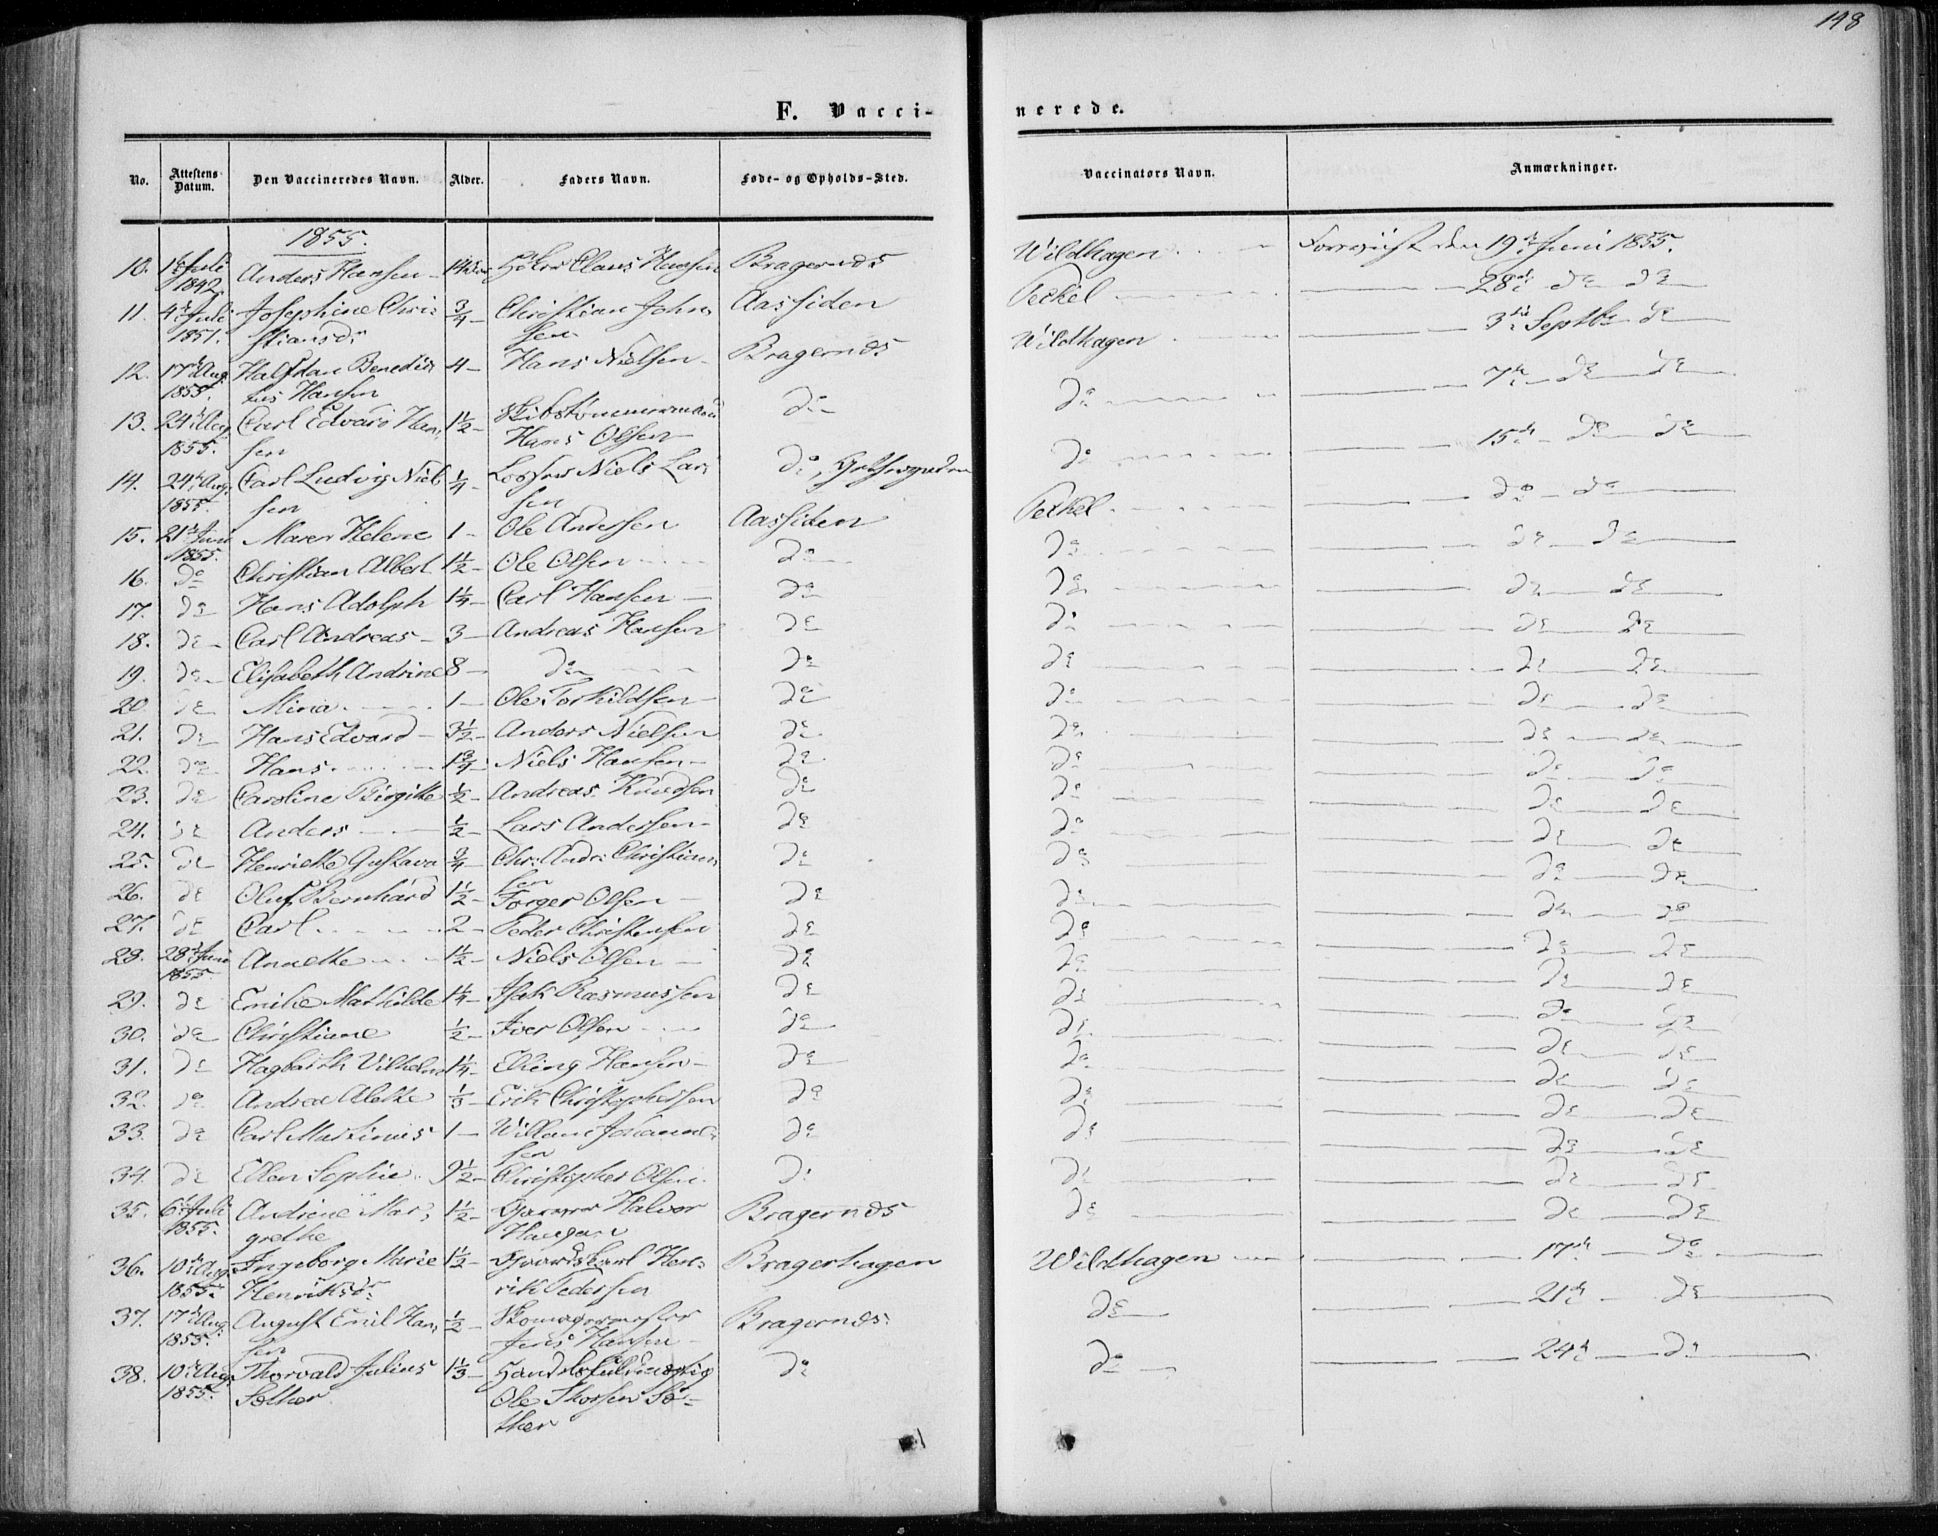 198
F. Vacci-
nerede.
No. Attestens Datum. Den Vaccineredes Navn. Alder. Faders Navn. Føde- og Opholds-Sted. Vaccinators Navn. Anmærkninger.
1855.
10. 1ste Juli Anders Hansen Claus Hansen Bragernæs Wildhagen Forevist den 19de Juni 1855.
1842
11. 4de Juli Josephine Chri- 3/4 Christian John- Aassiden Peckel 28de do do
1851. stiansdr sen
12. 17de Aug. Halfdan Benedic- 4 Hans Nielsen Bragernæs Wildhagen 3die Septbr do
1855. tus Hansen
13. 24de Aug. Carl Edvard Han- 1 1/2 Skibstømmermand do do 7de do do
1855. sen Hans Olsen
14. 24de Aug. Carl Ludvig Niel- 1/4 Niels Lar- do, do 15de do do
1855. sen sen
15. 21de Juni Maren Helene 1 Ole Andersen Aassiden Peckel do do
1855.
16. do Christian Albert 1 1/2 Ole Olsen do do do do
17. do Hans Adolph 1 1/4 Carl Hansen do do do do
18. do Carl Andreas 3 Andreas Hansen do do do do
19. do Elisabeth Andrine 8 do do do do do
20. do Mina 1 Ole Torkildsen do do do do
21. do Hans Edvard 3 1/2 Anders Nielsen do do do do
22. do Hans 1 3/4 Niels Hansen do do do do
23. do Caroline Birgitte 1/2 Andreas Knudsen do do do do
24. do Anders 1/2 Lars Andersen do do do do
25. do Henriette Gustava 3/4 Chr. Andr. Christian- do do do do
sen
26. do Oluf Bernhard 1 1/2 Torger Olsen do do do do
27. do Carl 2 Peder Christensen do do do do
28. 28de Juni Annette 1 1/2 Niels Olsen do do do do
1855.
29. do Emilie Mathilde 1 1/4 Isak Rasmussen do do do do
30. do Christiane 1/2 Iver Olsen do do do do
31. do Hagbarth Vilhelm 1 1/4 Elling Hansen do do do do
32. do Andrea Alette 1/3 Erik Christophersen do do do do
33. do Carl Martinus 1 Willam Johanne- do do do do
sen
34. do Ellen Sophie 9 1/2 Christopher Olsen do do do do
35. 6te Juli Andrine Mar- 1 1/2 Halvor Bragernæs do do do
1855. grethe Haugan
36. 10de Aug. Ingeborg Marie 1 1/2 Carl Hen- Bragerhagen Wildhagen 17de do
1855. Henriksdr. rik Pedersen
37. 17de Aug. August Emil Han- 1/2 Skomagermester Bragernæs do 21de do
1855. sen Jens Hansen
38. 10de Aug. Thorvald Julius 1 1/3 Handelsfuldmægtig do do 24de do
1855. Sother Ole Thorsen So-
ther